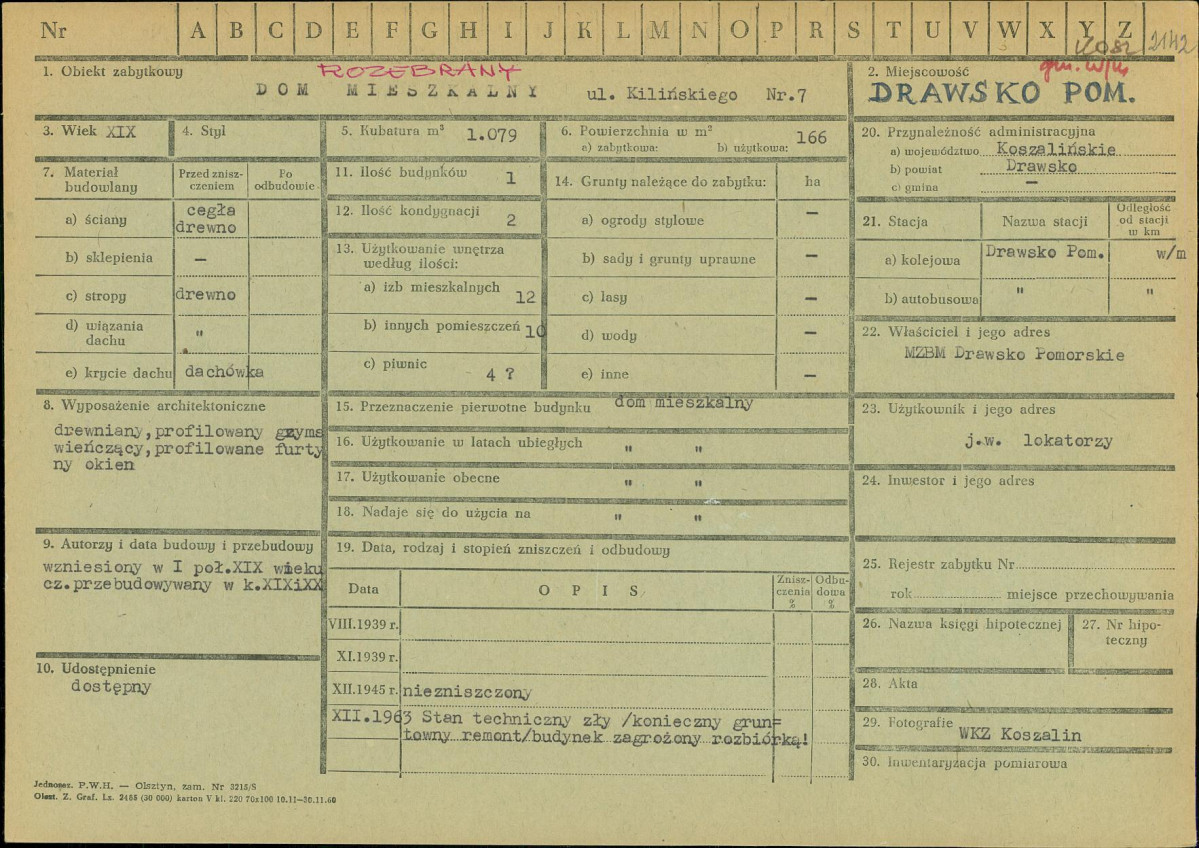 Nr A B C D E F G H I J K L M N O P R S T U V W X Y Z 2142
ROZEBRANY
1. Obiekt zabytkowy
DOM MIESZKALNY ul. Kilińskiego Nr.7
2. Miejscowość
gm. w/m
DRAWSKO POM.
3. Wiek XIX
4. Styl
5. Kubatura m³ 1.079
6. Powierzchnia w m²
a) zabytkowa: b) użytkowa: 166
7. Materiał budowlany
Przed zniszczeniem
Po odbudowie
a) ściany cegła
drewno
b) sklepienia —
c) stropy drewno
d) wiązania dachu "
e) krycie dachu dachówka
8. Wyposażenie architektoniczne
drewniany,profilowany gzyms
wieńczący,profilowane furty
ny okien
9. Autorzy i data budowy i przebudowy
wzniesiony w I poł.XIX wieku
cz.przebudowywany w k.XIXiXX
10. Udostępnienie
dostępny
11. Ilość budynków 1
12. Ilość kondygnacji 2
13. Użytkowanie wnętrza
według ilości:
a) izb mieszkalnych 12
b) innych pomieszczeń 10
c) piwnic 4 ?
14. Grunty należące do zabytku: ha
a) ogrody stylowe —
b) sady i grunty uprawne —
c) lasy —
d) wody —
e) inne —
15. Przeznaczenie pierwotne budynku dom mieszkalny
16. Użytkowanie w latach ubiegłych " "
17. Użytkowanie obecne " "
18. Nadaje się do użycia na " "
19. Data, rodzaj i stopień zniszczeń i odbudowy
Data OPIS Zniszczenia % Odbudowa %
VIII.1939 r.
XI.1939 r.
XII.1945 r. niezniszczony
XII.1963 Stan techniczny zły /konieczny grun=
towny remont/budynek zagrożony rozbiórką!
20. Przynależność administracyjna
a) województwo Koszalińskie
b) powiat Drawsko
c) gmina —
21. Stacja Nazwa stacji Odległość od stacji w km
a) kolejowa Drawsko Pom. w/m
b) autobusowa " "
22. Właściciel i jego adres
MZBM Drawsko Pomorskie
23. Użytkownik i jego adres
j.w. lokatorzy
24. Inwestor i jego adres
25. Rejestr zabytku Nr
rok miejsce przechowywania
26. Nazwa księgi hipotecznej
27. Nr hipoteczny
28. Akta
29. Fotografie
WKZ Koszalin
30. Inwentaryzacja pomiarowa
Jednosez. P.W.H. — Olsztyn, zam. Nr 3215/S
Olszt. Z. Graf. Lz. 2485 (30 000) karton V kl. 220 70x100 10.11—30.11.60